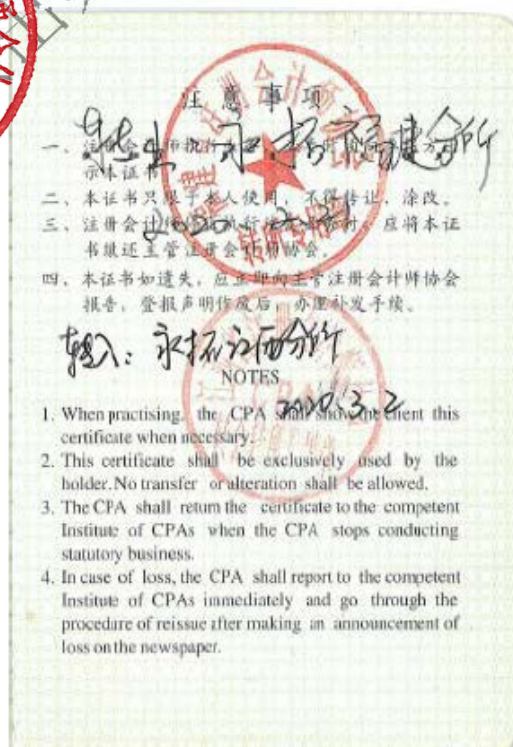 注意事项
转出:永拓福建分所
一、注册会计师执行业务,必要时须向委托方出
示本证书。
二、本证书只限于本人使用,不得转让、涂改。
三、注册会计师停止执行法定业务时,应将本证
书缴还主管注册会计师协会。
四、本证书如遗失,应立即向主管注册会计师协会
报告,登报声明作废后,办理补发手续。
转入:永拓江西分所
NOTES
2020.3.2
1. When practising, the CPA shall show the client this
certificate when necessary.
2. This certificate shall be exclusively used by the
holder. No transfer or alteration shall be allowed.
3. The CPA shall return the certificate to the competent
Institute of CPAs when the CPA stops conducting
statutory business.
4. In case of loss, the CPA shall report to the competent
Institute of CPAs immediately and go through the
procedure of reissue after making an announcement of
loss on the newspaper.